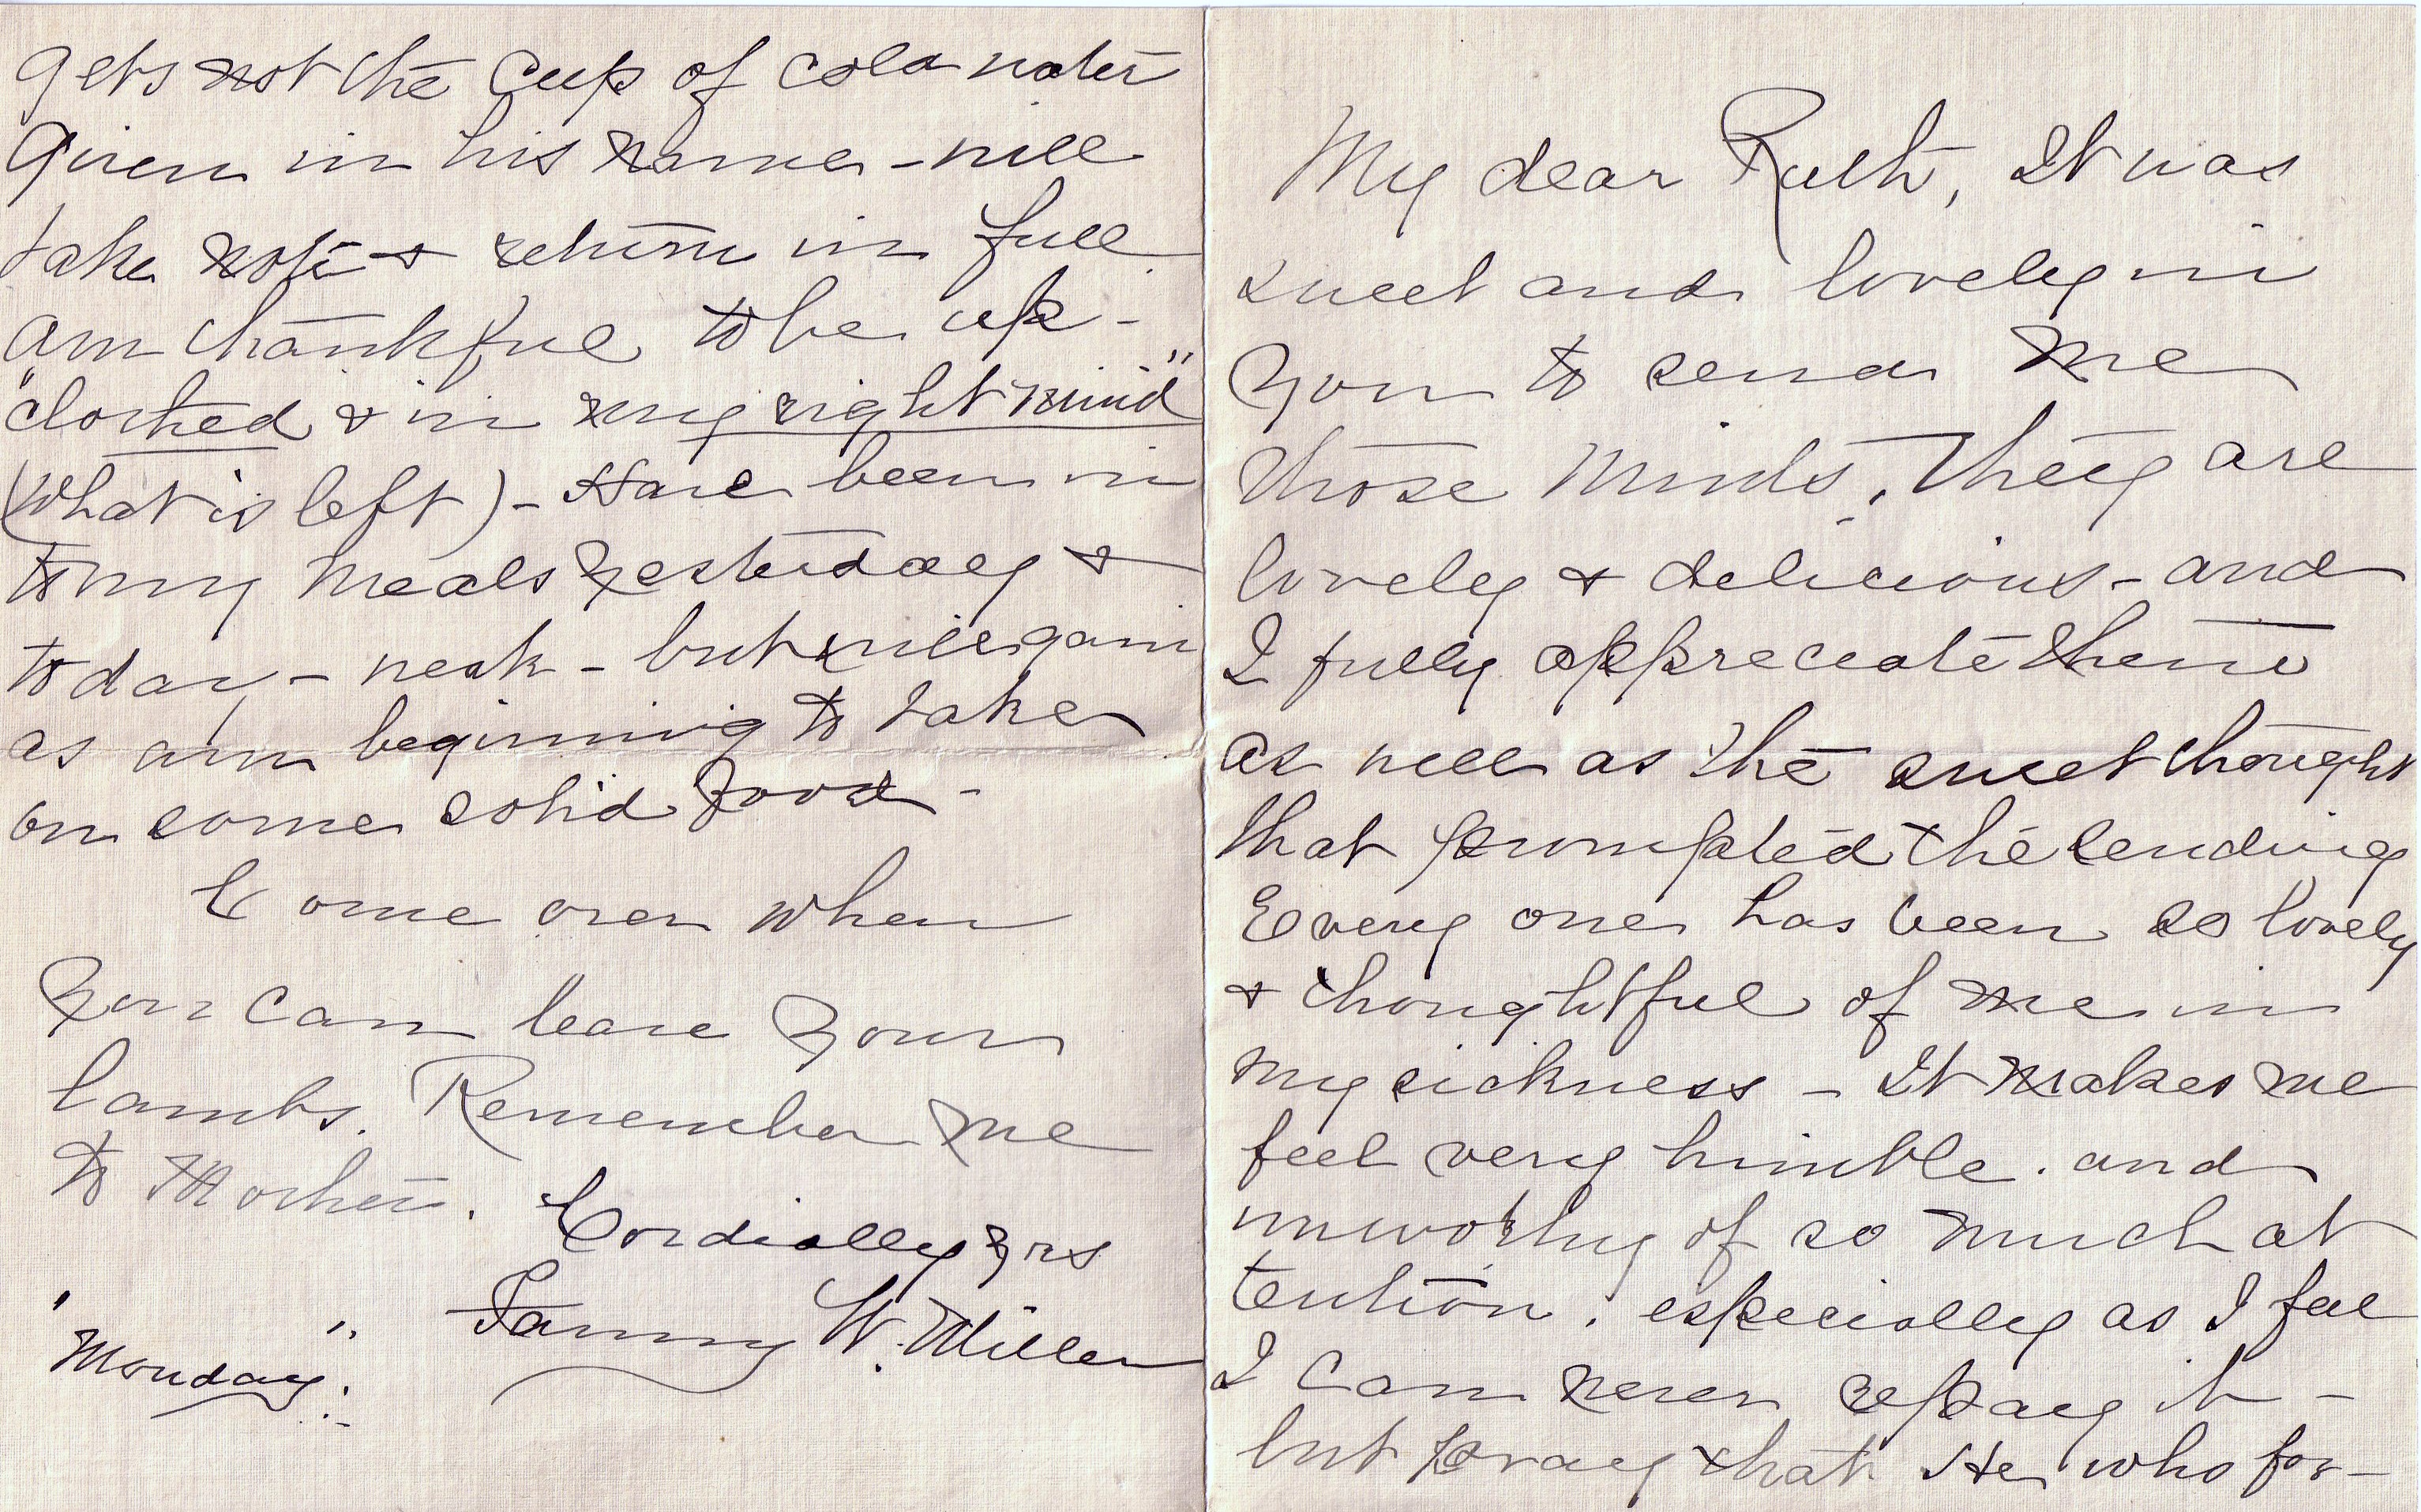 My dear Ruth, It was
sweet and lovely in
you to send me
those Mints, They are
lovely & delicious - and
I fully appreciate them
as well as the sweet thought
that prompted the sending
Every one has been so lovely
& thoughtful of me in
my sickness - It makes me
feel very humble. and
unworthy of so much at
tention. especially as I feel
I can never repay it -
but pray that He who for-
gets not the cup of cold water
given in his name - will
take note & return in full
am thankful to be up -
"clothed & in my right mind"
(what is left) - Have been in
to my meals yesterday &
today - weak - but will gain
as am beginning to take
on some solid food -
Come over when
you can leave your
lambs. Remember me
to Mother. Cordially yrs
Fanny W. Miller
"Monday".